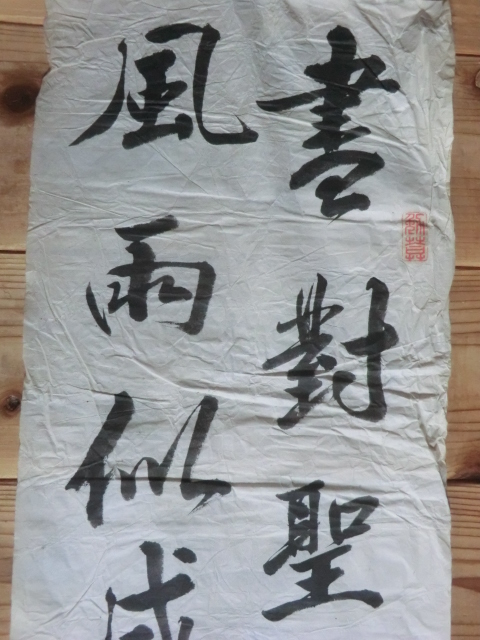 對聖
風雨似